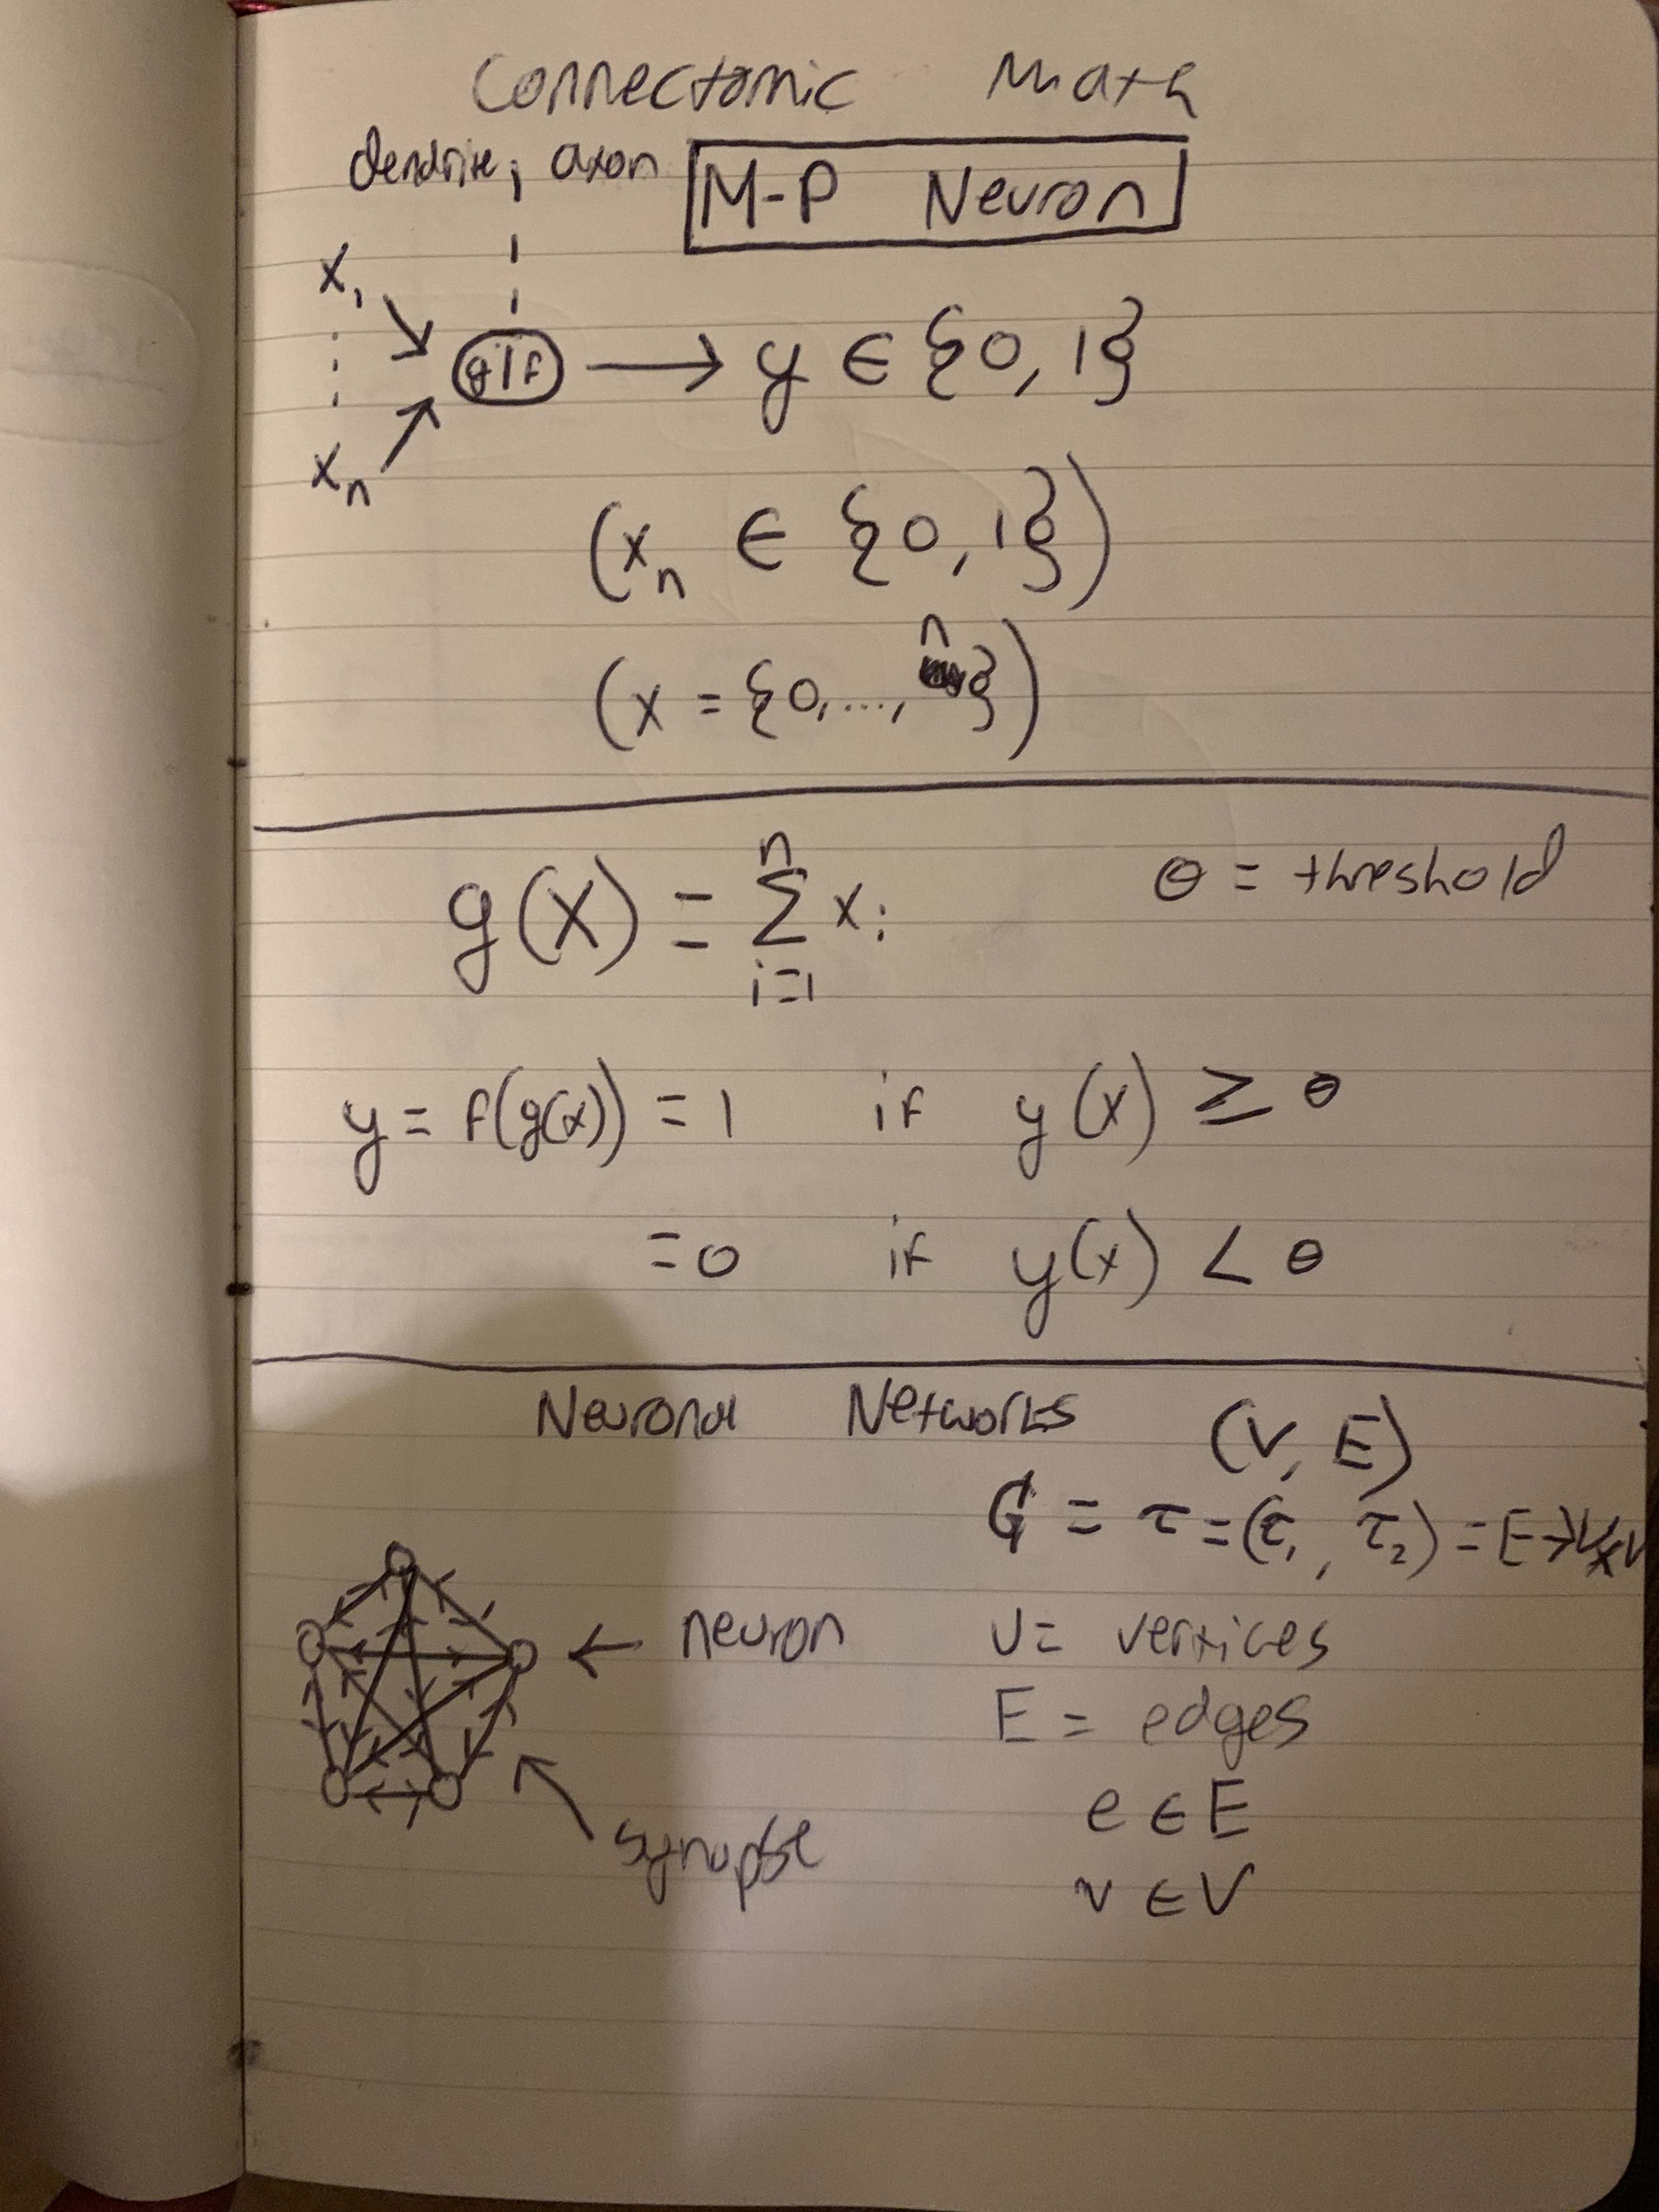 Connectomic Math
dendrite ¦ axon
M-P Neuron
x₁
⋮
xₙ
g|f → y ∈ {0, 1}
(xₙ ∈ {0, 1})
(x = {0, ..., n})
g(x) = Σ xᵢ
n
i=1
θ = threshold
y = f(g(x)) = 1 if y(x) ≥ θ
= 0 if y(x) < θ
Neuronal Networks
(V, E)
G = τ = (τ₁, τ₂) = E → V×V
← neuron
synapse
V = vertices
E = edges
e ∈ E
v ∈ V